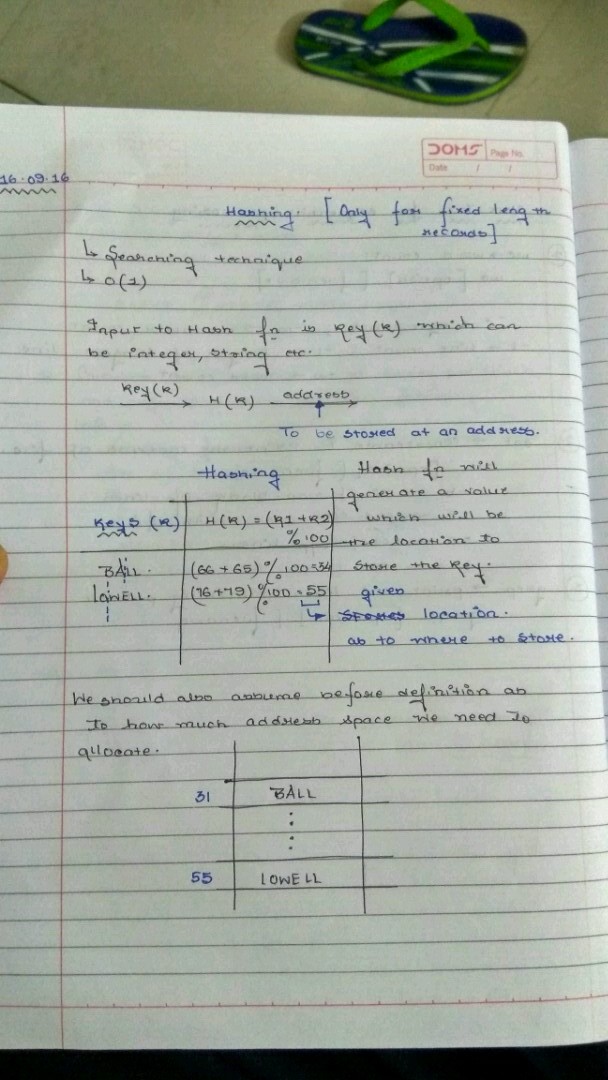 DOMS Page No.
Date / /
16.09.16
Hashing. [Only for fixed length
records]
↳ Searching technique
↳ O(1)
Input to Hash fn is key(k) which can
be integer, string etc.
key(k) → H(k) address →
To be stored at an address.
Hashing
Keys (k)
H(k) = (k1+k2)
%100
BALL.
(66+65)%100=34
LOWELL.
(76+79)%100=55
Hash fn will
generate a value
which will be
the location to
store the key.
given
location.
as to where to store.
We should also assume before definition as
to how much address space we need to
allocate.
31 BALL
55 LOWELL